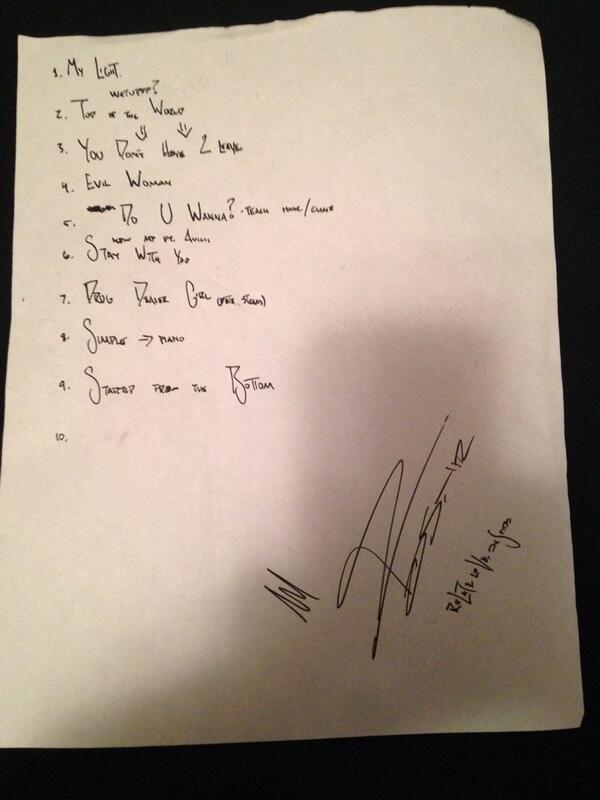 1. My Light.
watupp?
2. Top of the World
3. You Don't Have 2 Leave
4. Evil Woman
5. Do U Wanna? - teach
6. Stay With You
7. Drug Dealer Girl
8. Simple → piano
9. Started From the Bottom
10.